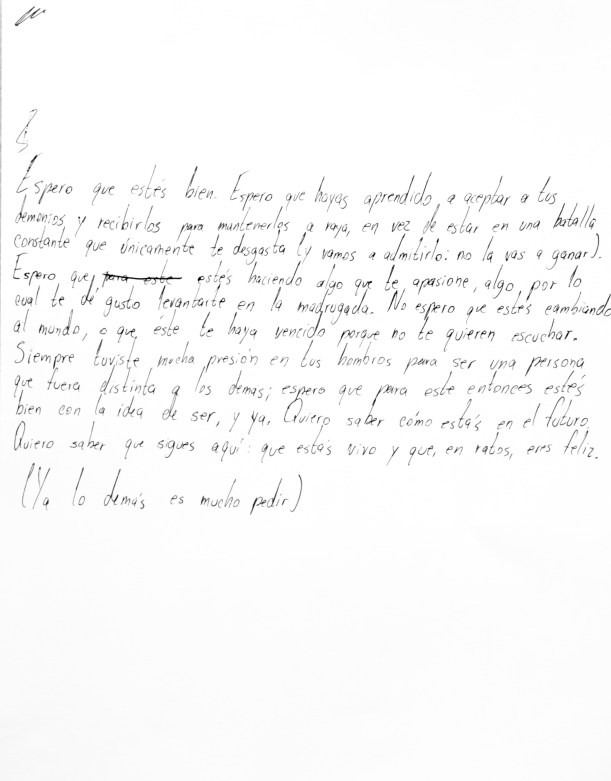 Espero que estés bien. Espero que hayas aprendido a aceptar a tus
demonios y recibirlos para mantenerlos a raya, en vez de estar en una batalla
constante que únicamente te desgasta (y vamos a admitirlo: no la vas a ganar).
Espero que, para este estés haciendo algo que te apasione, algo por lo
cual te dé gusto levantarte en la madrugada. No espero que estés cambiando
al mundo, o que este te haya vencido porque no te quieren escuchar.
Siempre tuviste mucha presión en tus hombros para ser una persona
que fuera distinta a los demás; espero que para este entonces estés
bien con la idea de ser, y ya. Quiero saber cómo estás en el futuro.
Quiero saber que sigues aquí: que estás vivo y que, en ratos, eres feliz.
(Ya lo demás es mucho pedir)